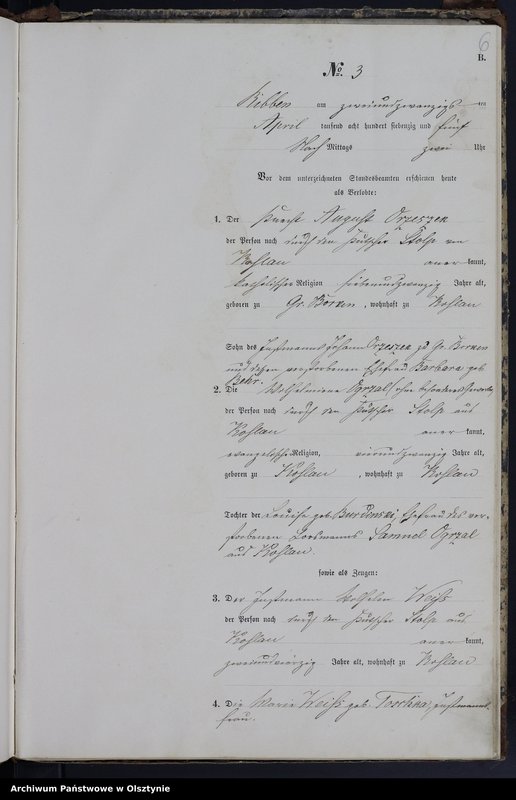 6
B.
No. 3
Ribben am zweiundzwanzigsten
April tausend acht hundert siebenzig und fünf
Nach Mittags zwei Uhr
Vor dem unterzeichneten Standesbeamten erschienen heute
als Verlobte:
1. Der Knecht August Orzeszek
der Person nach durch den Kutscher Stolp von
Koslau anerkannt,
katholischer Religion siebenundzwanzig Jahre alt,
geboren zu Gr. Borken, wohnhaft zu Koslau
Sohn des Instmanns Johann Orzeszek zu Gr. Borken
und dessen verstorbenen Ehefrau Barbara geb.
Behr.
2. Die Wilhelmine Ogrzal, ohne besonderes
der Person nach durch den Kutscher Stolp aus
Koslau anerkannt,
evangelischer Religion, vierundzwanzig Jahre alt,
geboren zu Koslau, wohnhaft zu Koslau
Tochter der Louise geb. Burdenski, Ehefrau des ver-
storbenen Losmanns Samuel Ogrzal
aus Koslau.
sowie als Zeugen:
3. Der Instmann Wilhelm Weiß
der Person nach durch den Kutscher Stolp aus
Koslau anerkannt,
zweiundvierzig Jahre alt, wohnhaft zu Koslau
4. Die Marie Weiß geb. Instmanns
frau.
Archiwum Państwowe w Olsztynie